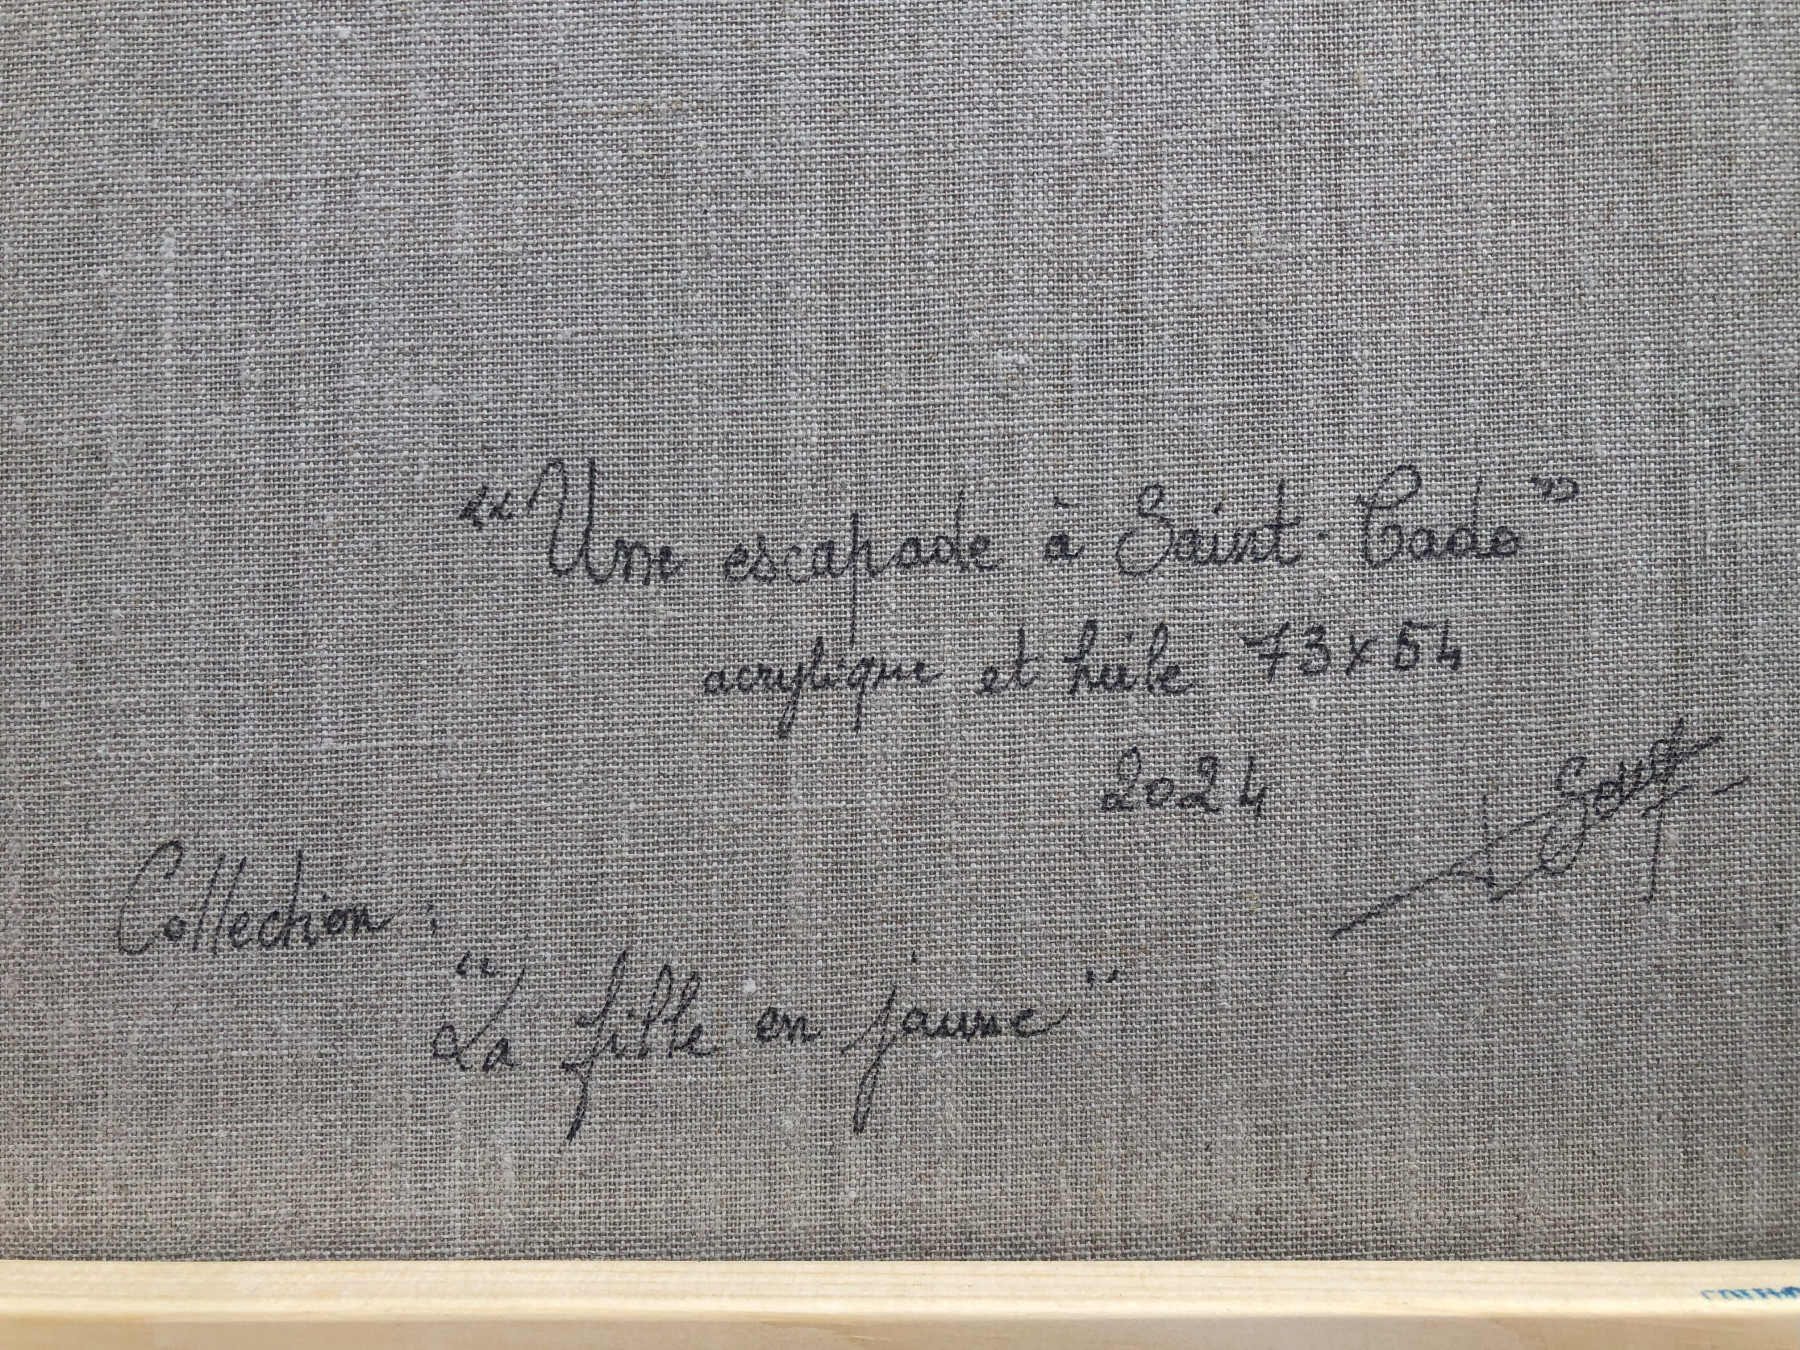 "Une escapade à Saint-Cado"
acrylique et huile 73x54
2024
Collection :
"La fille en jaune"